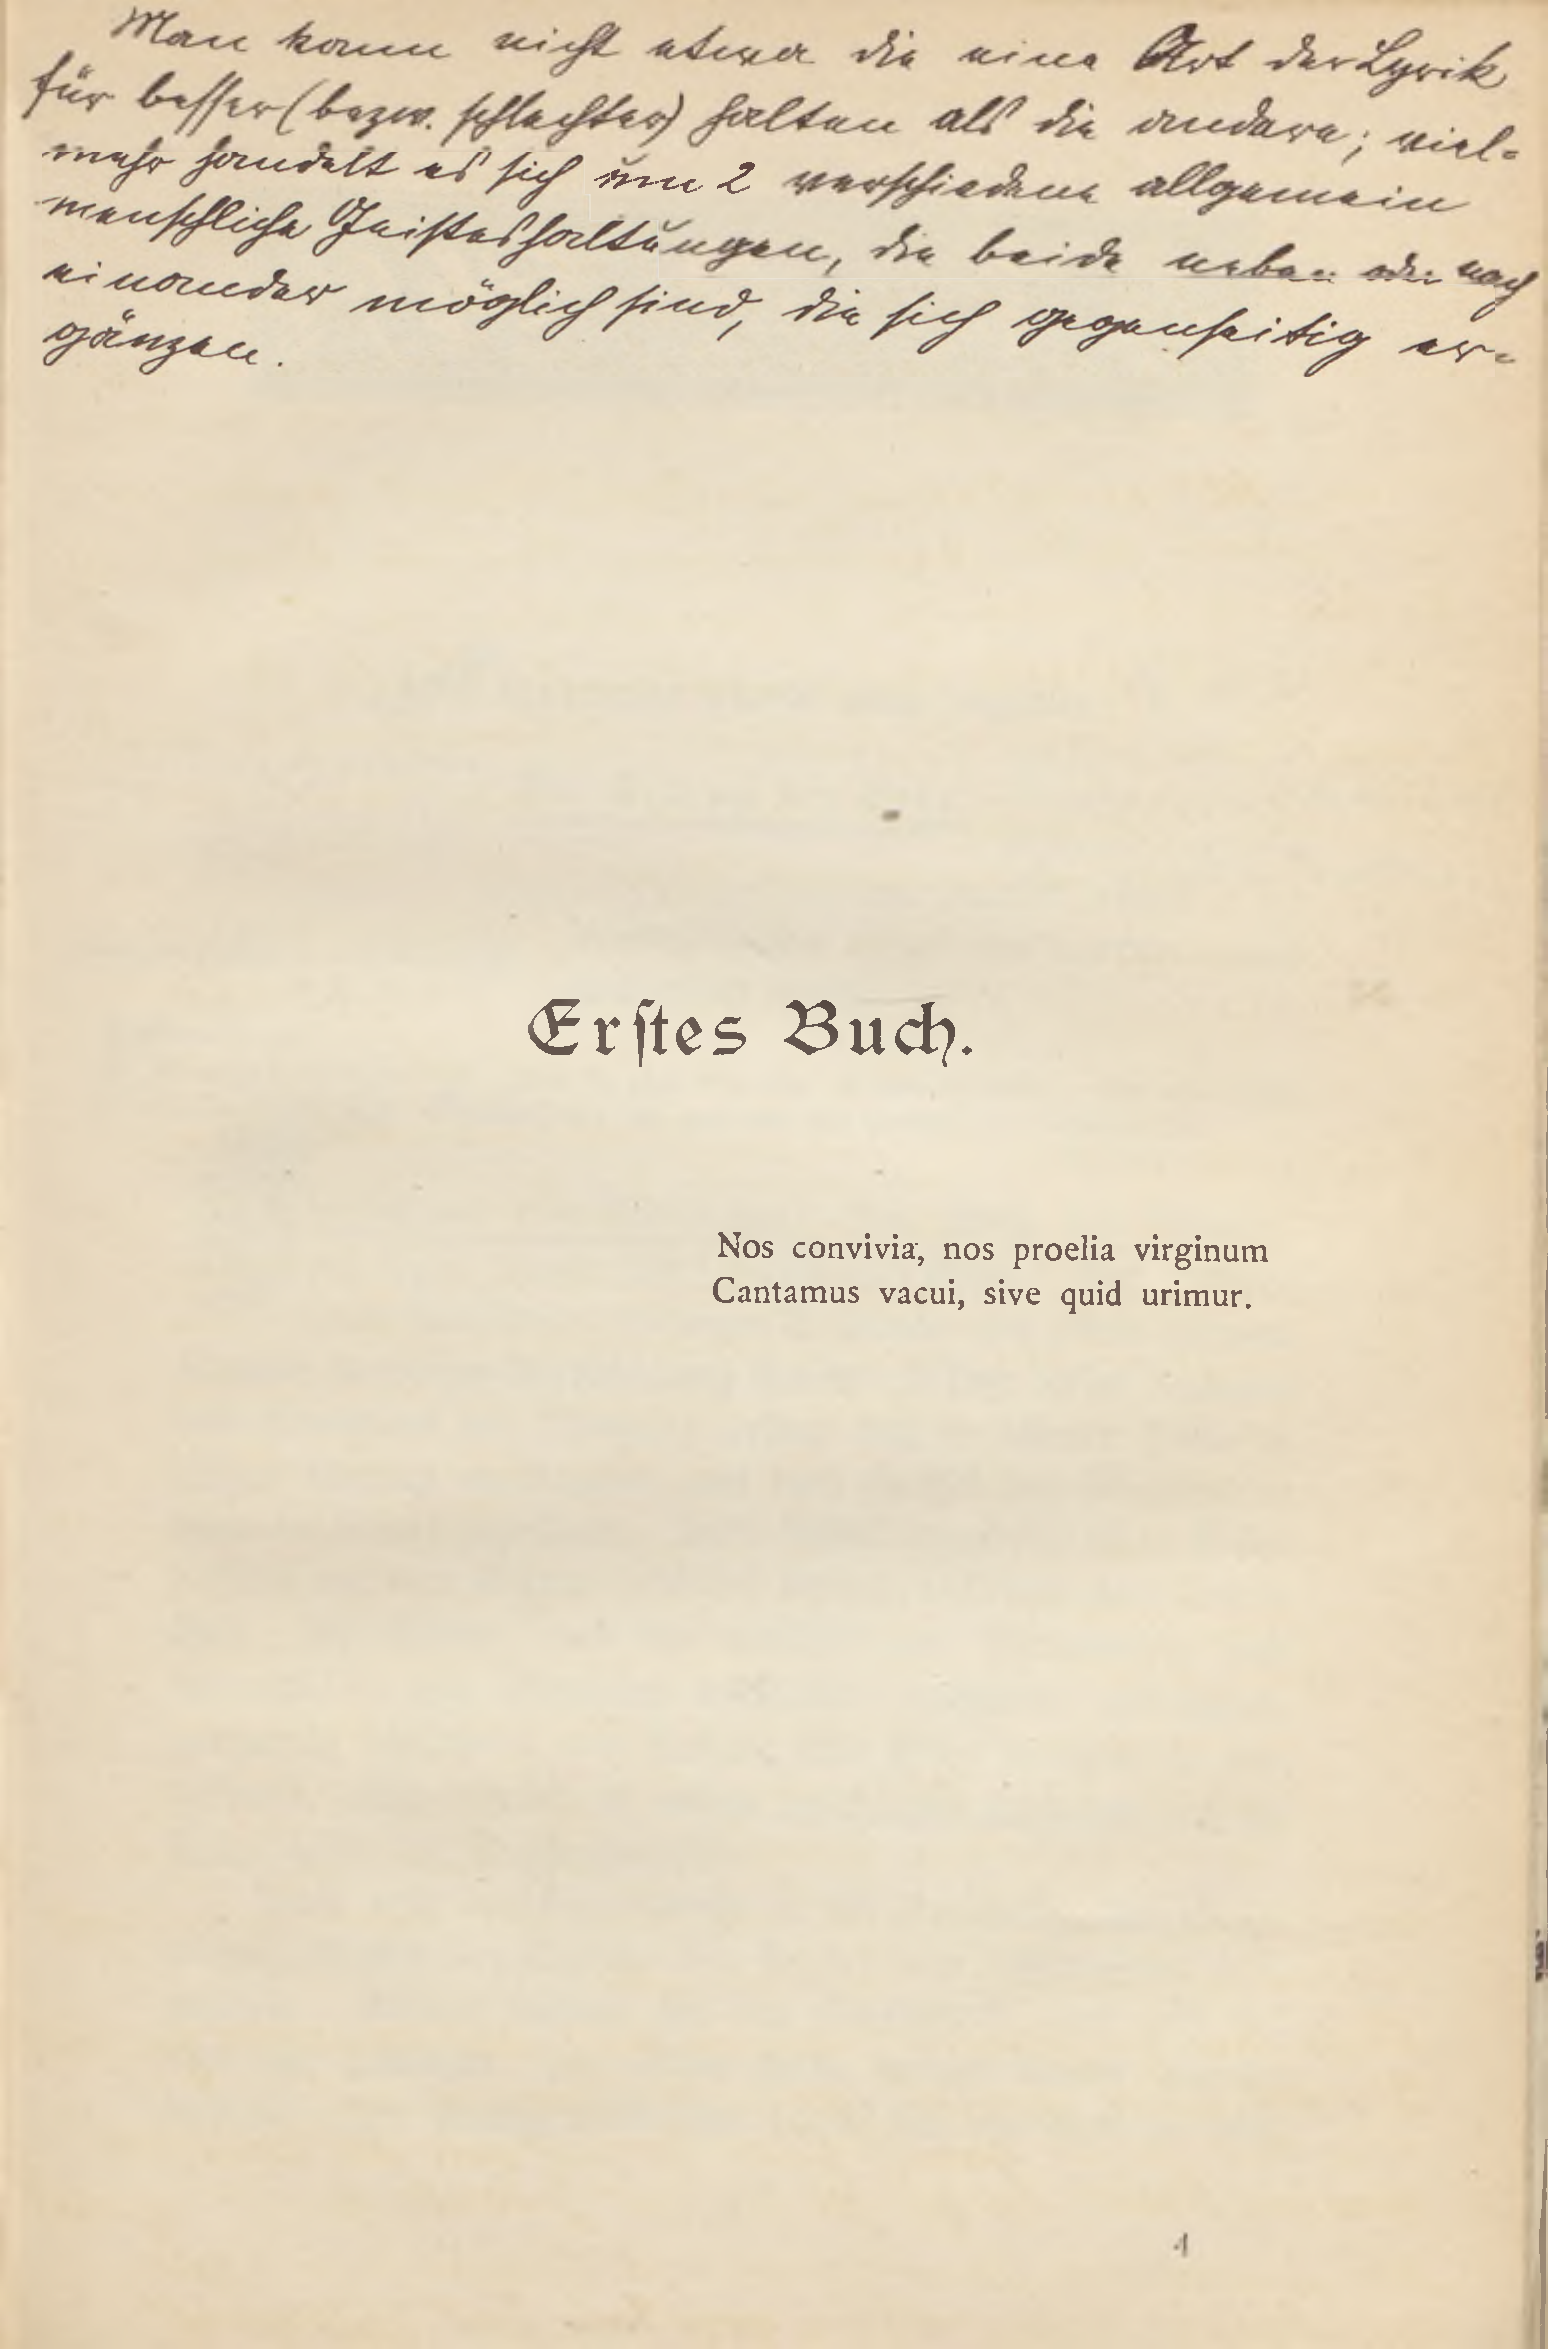 Man kann nicht etwa die eine Art der Lyrik
für besser (bezw. schlechter) halten als die andere; viel-
mehr handelt es sich um 2 verschiedene allgemein
menschliche Geisteshaltungen, die beide neben oder nach
einander möglich sind, die sich gegenseitig er-
gänzen.
Erſtes Buch.
Nos convivia, nos proelia virginum
Cantamus vacui, sive quid urimur.
1